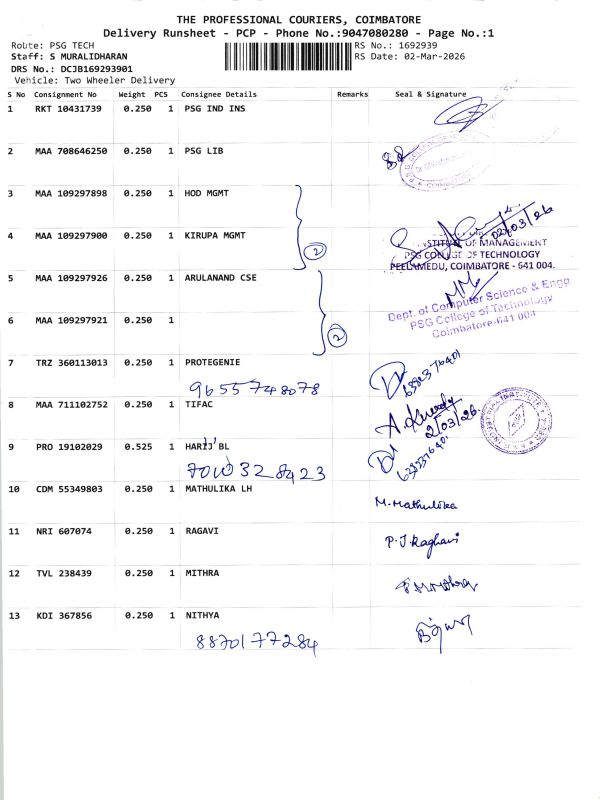 THE PROFESSIONAL COURIERS, COIMBATORE
Delivery Runsheet - PCP - Phone No.:9047080280 - Page No.:1
Route: PSG TECH
RS No.: 1692939
Staff: S MURALIDHARAN
RS Date: 02-Mar-2026
DRS No.: DCJB169293901
Vehicle: Two Wheeler Delivery
S No Consignment No Weight PCS Consignee Details Remarks Seal & Signature
1 RKT 10431739 0.250 1 PSG IND INS
2 MAA 708646250 0.250 1 PSG LIB
3 MAA 109297898 0.250 1 HOD MGMT
02/03/26
4 MAA 109297900 0.250 1 KIRUPA MGMT
2
OF MANAGEMENT
PSG COLLEGE OF TECHNOLOGY
PEELAMEDU, COIMBATORE - 641 004.
5 MAA 109297926 0.250 1 ARULANAND CSE
Dept. of Computer Science & Engg
PSG College of Technology
Coimbatore-641 004
6 MAA 109297921 0.250 1
2
7 TRZ 360113013 0.250 1 PROTEGENIE
9655748078
8 MAA 711102752 0.250 1 TIFAC
2/03/26
9 PRO 19102029 0.525 1 BL
10 CDM 55349803 0.250 1 MATHULIKA LH
M. Mathulika
11 NRI 607074 0.250 1 RAGAVI
P. J. Raghavi
12 TVL 238439 0.250 1 MITHRA
13 KDI 367856 0.250 1 NITHYA
8870177284